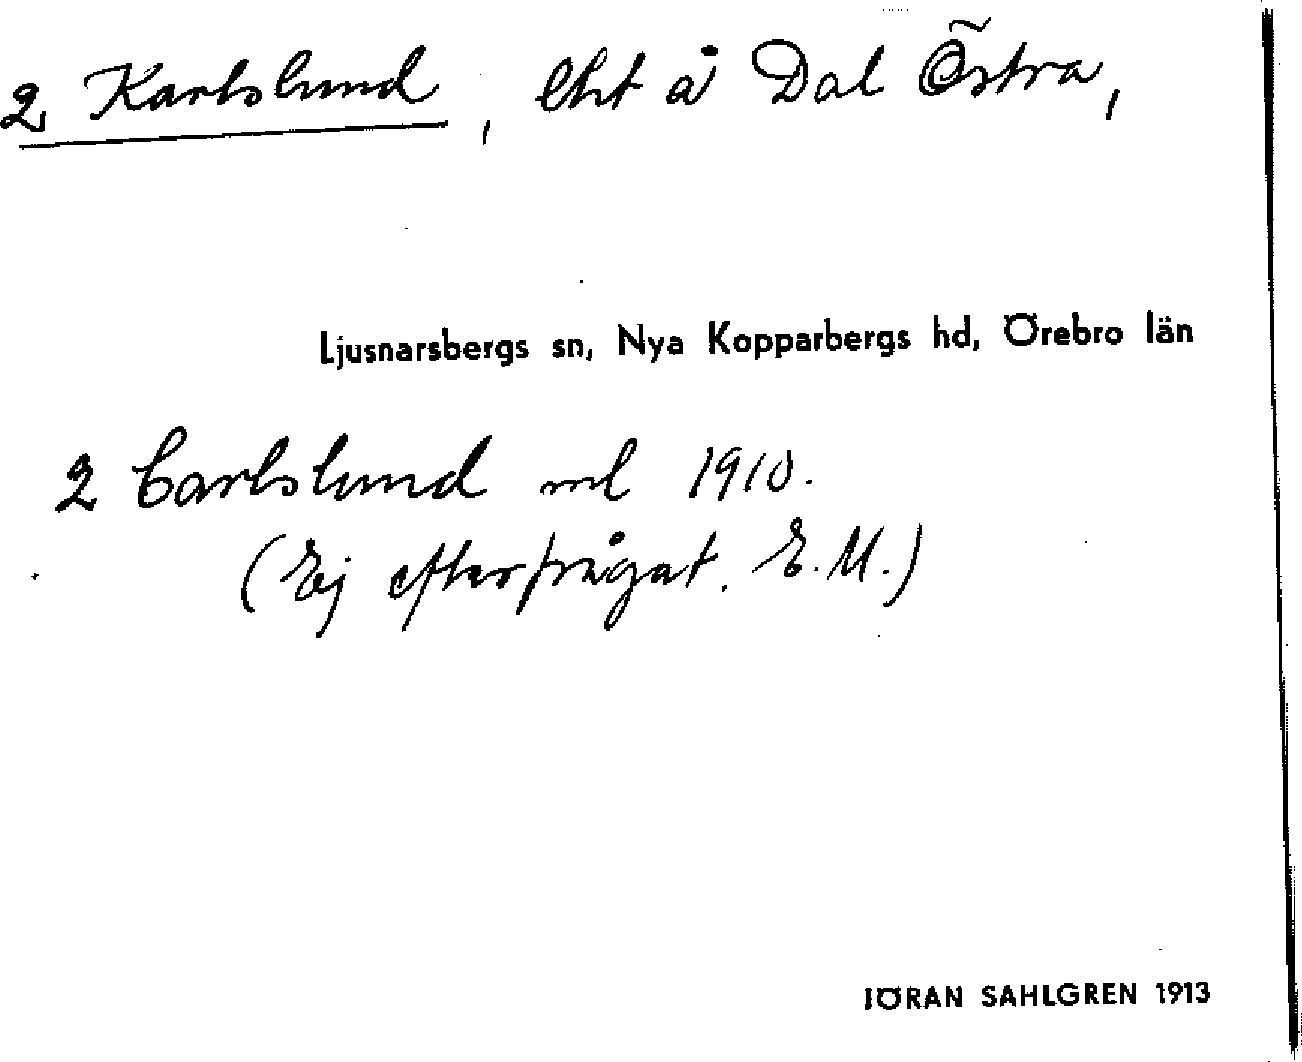 2 Karlslund, lht å Dal Östra,
Ljusnarsbergs sn, Nya Kopparbergs hd, Örebro län
2 Carlslund ml 1910.
(Ej efterfrågat. E.M.)
JÖRAN SAHLGREN 1913